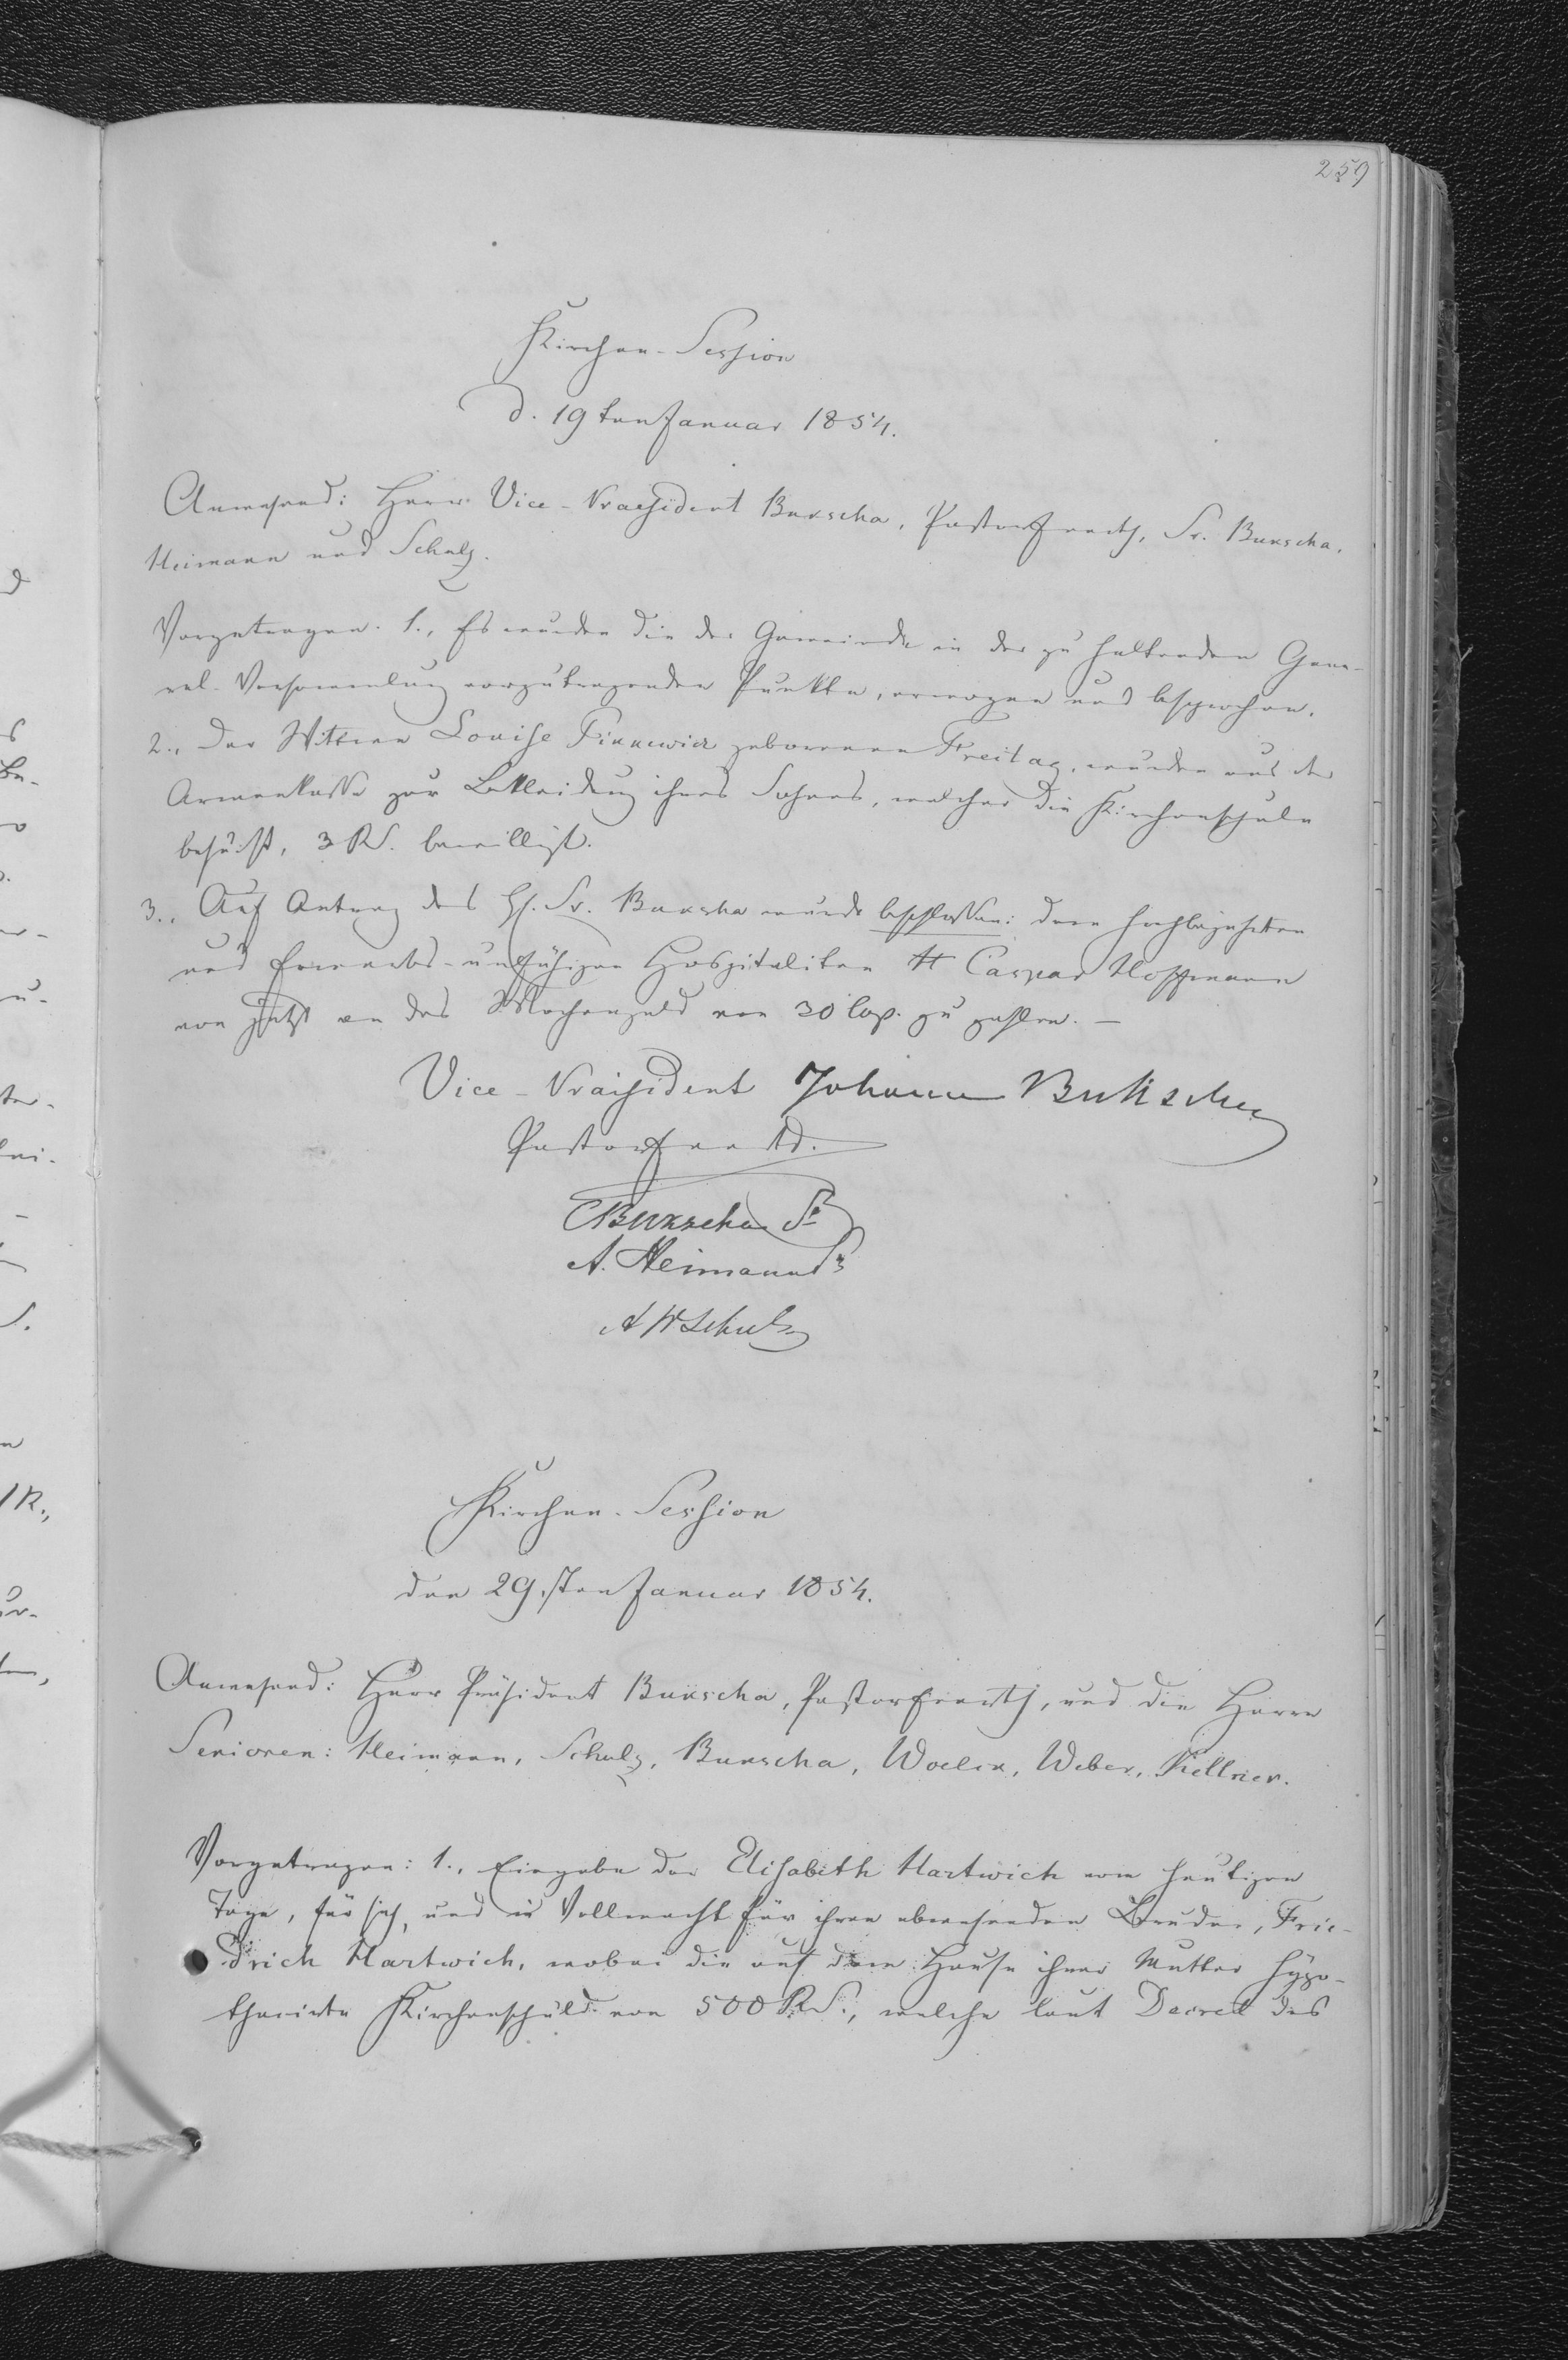 259
Kirchen-Session
d. 19ten Januar 1854.
Anwesend: Herr Vice-Praesident Bukscha, Pastor Freytag, Sr. Bukscha,
Heimann und Schulz.
Vorgetragen. 1., Es wurden die der Gemeinde in der zu haltenden Gene-
ral-Versammlung vorzutragenden Punkte, erwogen und besprochen.
2., Der Wittwe Louise geborenen Freitag, wurden aus der
Armenkasse zur Bekleidung ihres Sohnes, welcher die Kirchenschule
besucht, 3 RS. bewilligt.
3., Auf Antrag des H. Sr. Bukscha wurde beschlossen: dem hochbejahrten
und Erwerbs-unfähigen Hospitaliten H Caspar Hoffmann
von jetzt an das Wochengeld von 30 Cop. zu zahlen. —
Vice-Präsident Johann Bukscha
Pastor
Bukscha Sr
A. Heimann Sr
A W Schulz
Kirchen-Session
den 29.sten Januar 1854.
Anwesend: Herr Präsident Bukscha, Pastor, und die Herrn
Senioren: Heimann, Schulz, Bukscha, Woelck, Weber, Kellner.
Vorgetragen: 1., Eingabe der Elisabeth Hartwich vom heutigen
Tage, für sich, und in Vollmacht für ihren abwesenden Bruder, Frie-
drich Hartwich, wobei die auf dem Hause ihrer Mutter hypo-
thecirte Kirchenschuld von 500 RS., welche laut Decret des